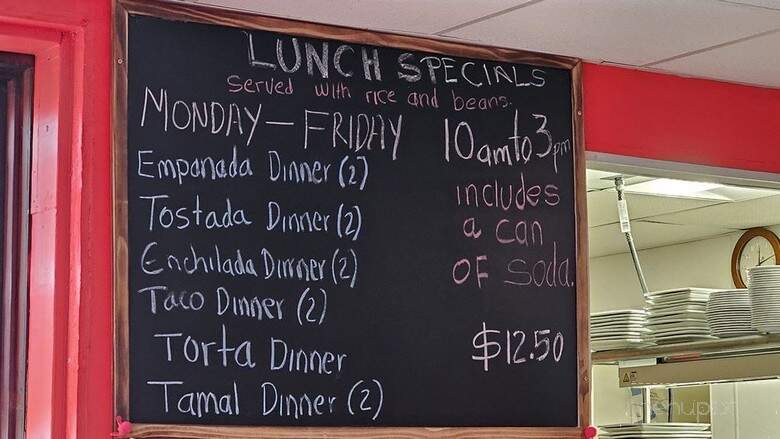 LUNCH SPECIALS
Served with rice and beans.
MONDAY – FRIDAY 10am to 3pm
Empanada Dinner (2)
Tostada Dinner (2)
Enchilada Dinner (2)
Taco Dinner (2)
Torta Dinner
Tamal Dinner (2)
includes
a can
of soda.
$12.50